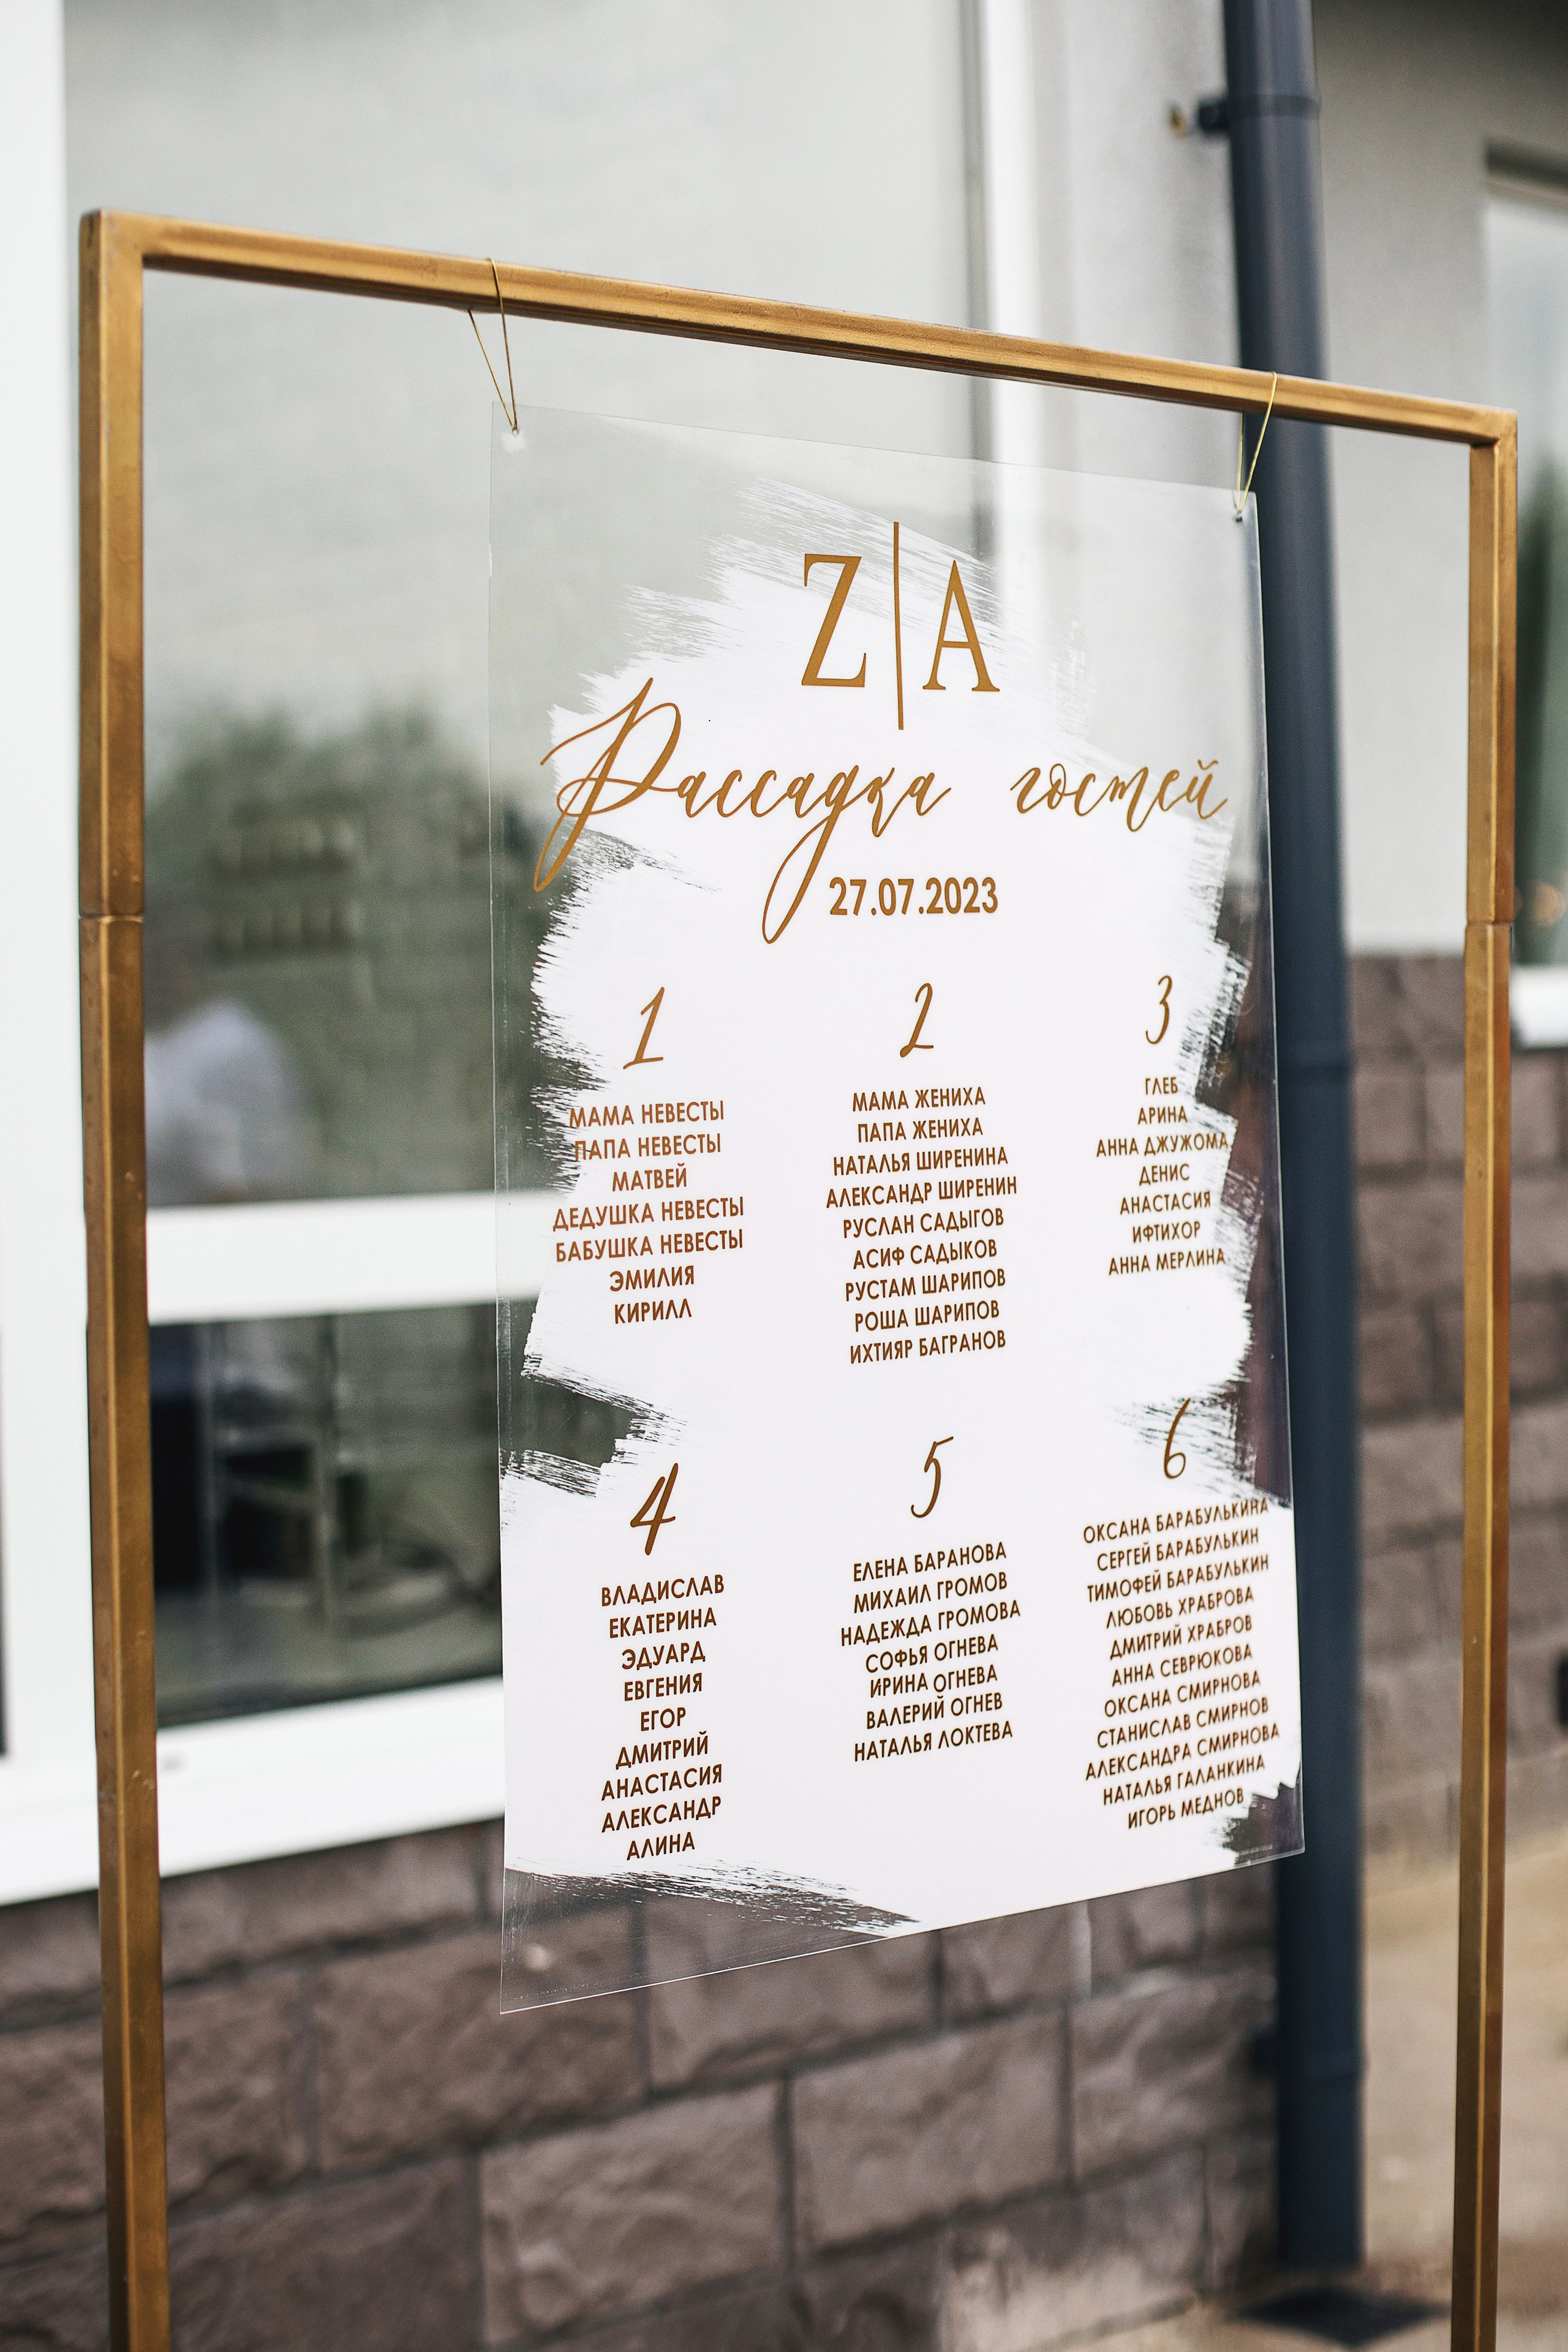 Z|A
Рассадка гостей
27.07.2023
1
МАМА НЕВЕСТЫ
ПАПА НЕВЕСТЫ
МАТВЕЙ
ДЕДУШКА НЕВЕСТЫ
БАБУШКА НЕВЕСТЫ
ЭМИЛИЯ
КИРИЛЛ
2
МАМА ЖЕНИХА
ПАПА ЖЕНИХА
НАТАЛЬЯ ШИРЕНИНА
АЛЕКСАНДР ШИРЕНИН
РУСЛАН САДЫГОВ
АСИФ САДЫКОВ
РУСТАМ ШАРИПОВ
РОША ШАРИПОВ
ИХТИЯР БАГРАНОВ
3
ГЛЕБ
АРИНА
АННА ДЖУЖОМА
ДЕНИС
АНАСТАСИЯ
ИФТИХОР
АННА МЕРЛИНА
4
ВЛАДИСЛАВ
ЕКАТЕРИНА
ЭДУАРД
ЕВГЕНИЯ
ЕГОР
ДМИТРИЙ
АНАСТАСИЯ
АЛЕКСАНДР
АЛИНА
5
ЕЛЕНА БАРАНОВА
МИХАИЛ ГРОМОВ
НАДЕЖДА ГРОМОВА
СОФЬЯ ОГНЕВА
ИРИНА ОГНЕВА
ВАЛЕРИЙ ОГНЕВ
НАТАЛЬЯ ЛОКТЕВА
6
ОКСАНА БАРАБУЛЬКИНА
СЕРГЕЙ БАРАБУЛЬКИН
ТИМОФЕЙ БАРАБУЛЬКИН
ЛЮБОВЬ ХРАБРОВА
ДМИТРИЙ ХРАБРОВ
АННА СЕВРЮКОВА
ОКСАНА СМИРНОВА
СТАНИСЛАВ СМИРНОВ
АЛЕКСАНДРА СМИРНОВА
НАТАЛЬЯ ГАЛАНКИНА
ИГОРЬ МЕДНОВ